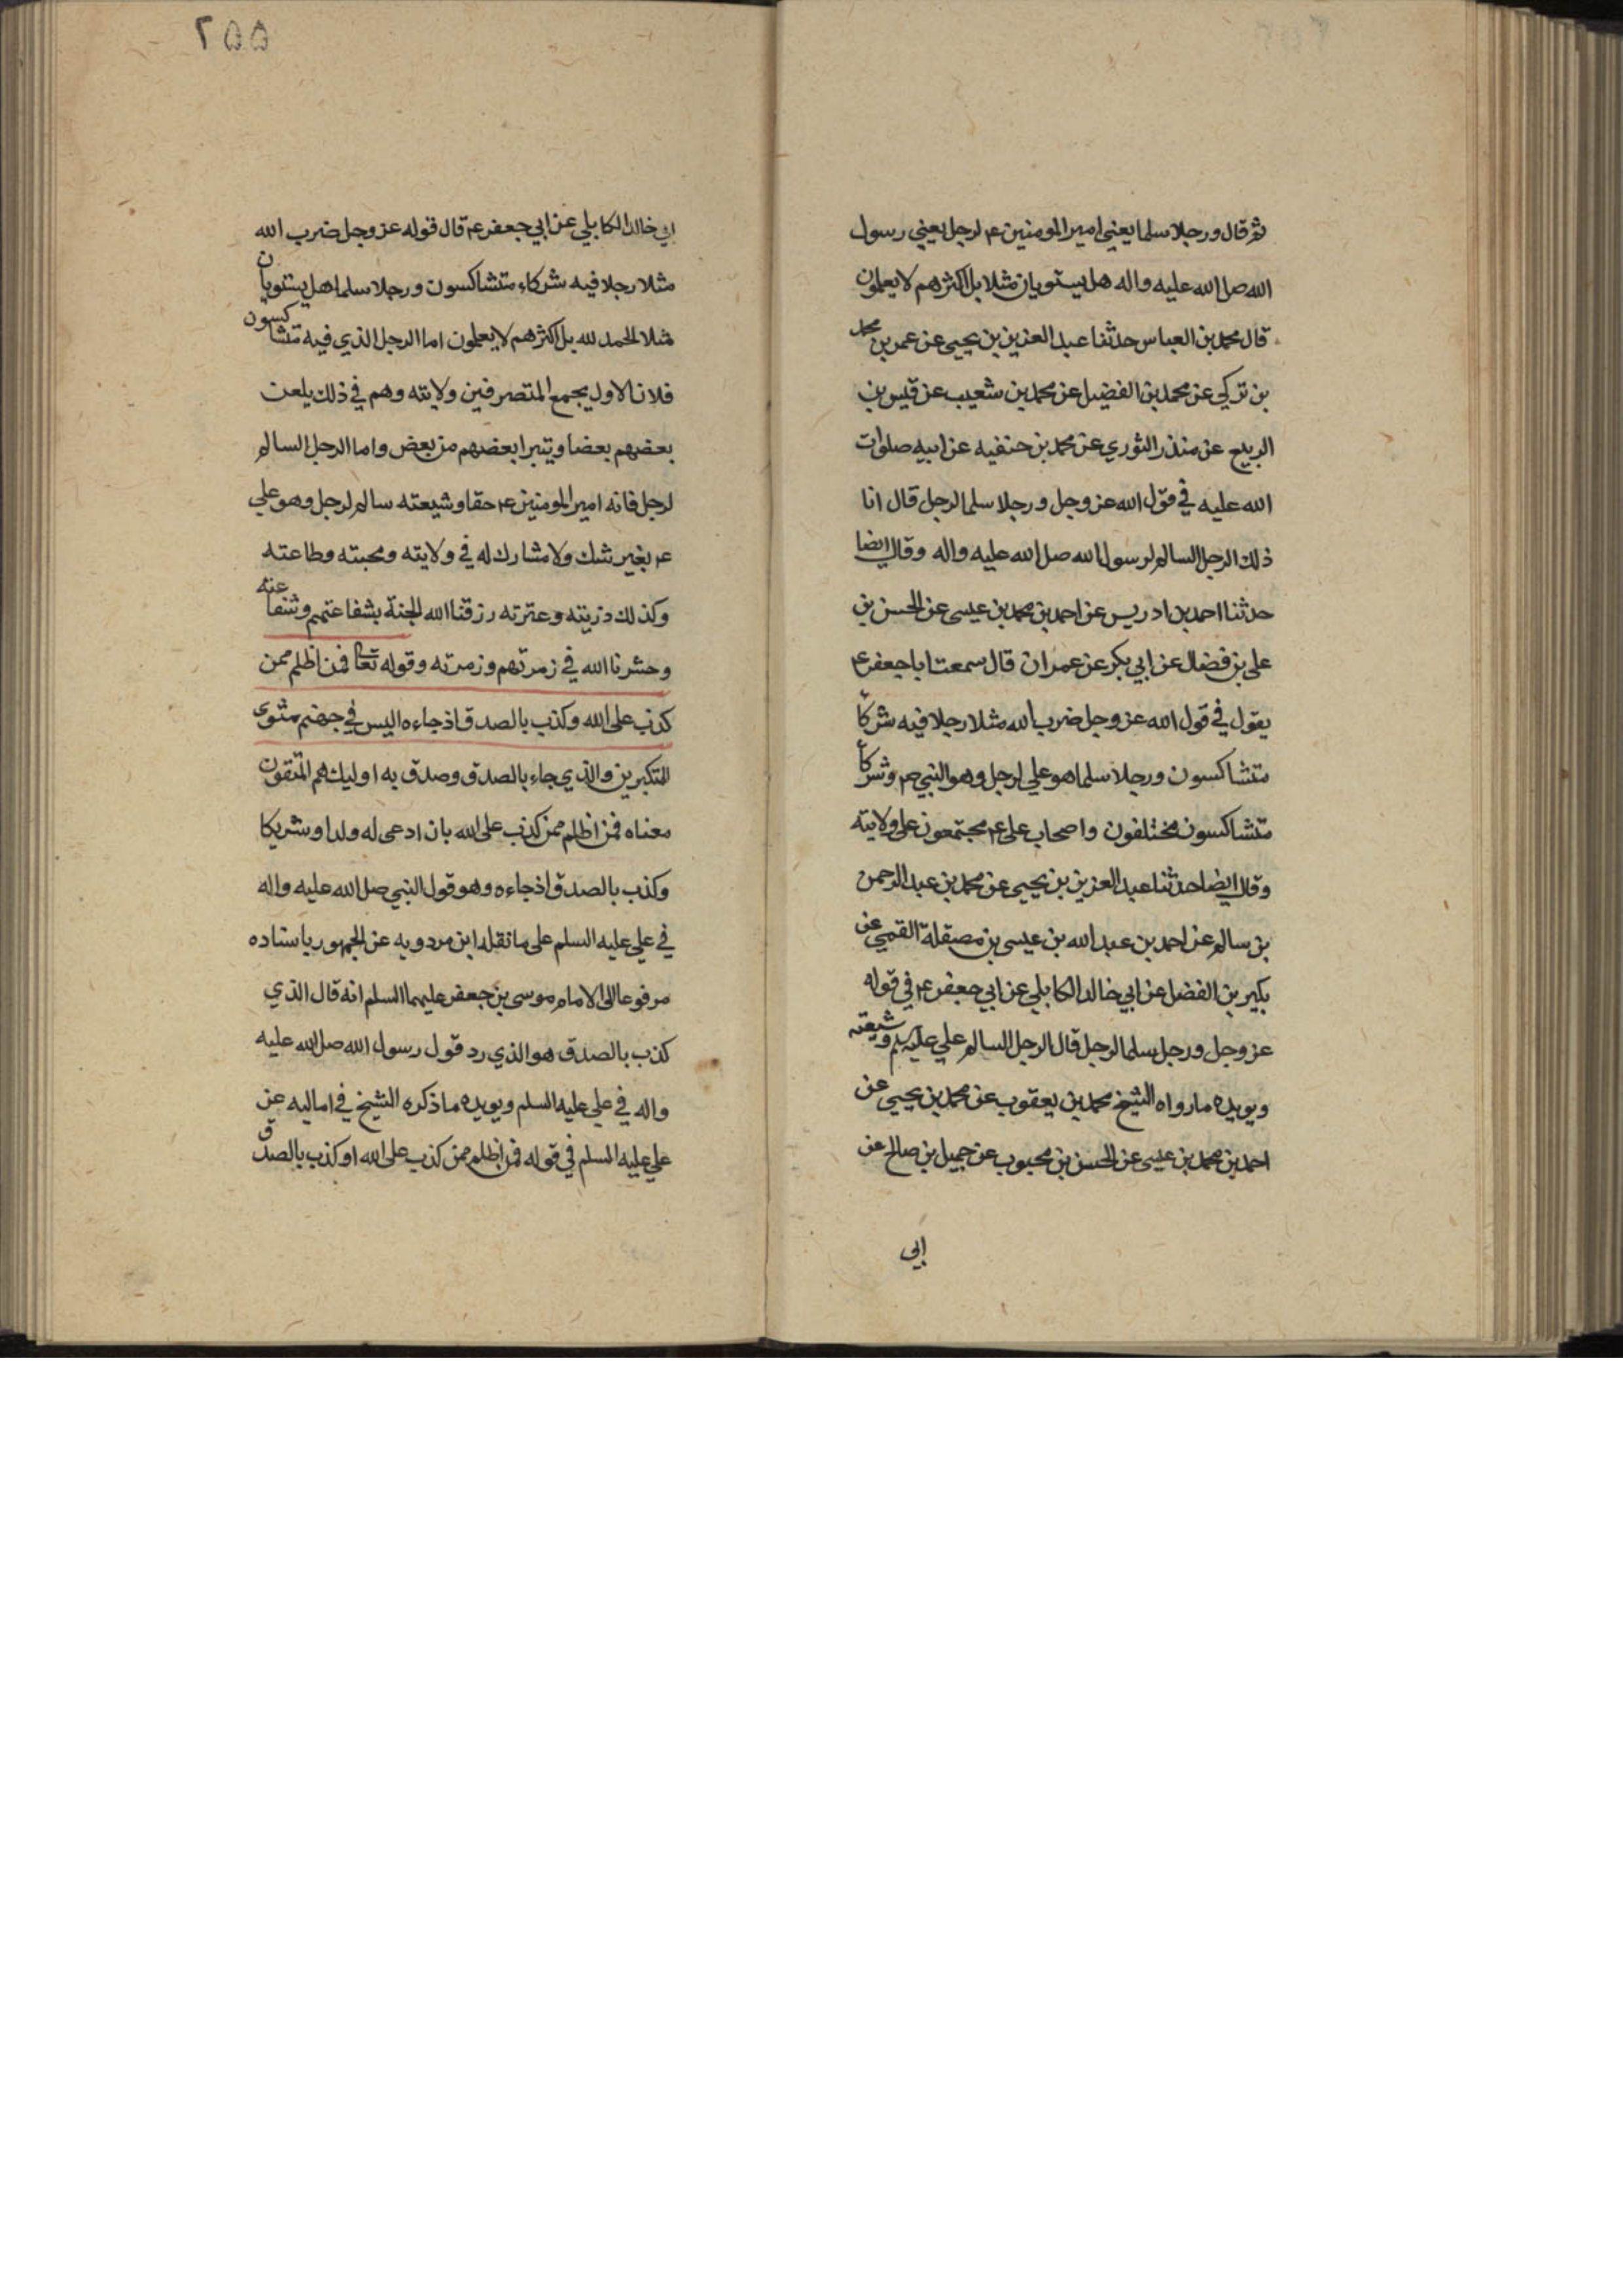 ثم قال ورجلا سلما يعني امير المومنين ع لرجل يعني رسول
الله صل الله عليه واله هل يستويان مثلا بل اكثرهم لا يعلمون
قال محمد بن العباس حدثنا عبد العزيز بن يحيى عن عمر بن محمد
بن تركي عن محمد بن الفضيل عن محمد بن شعيب عن قيس بن
الربيع عن منذر الثوري عن محمد بن حنفيه عن ابيه صلوات
الله عليه في قول الله عز وجل ورجلا سلما لرجل قال انا
ذلك الرجل السالم لرسول الله صل الله عليه واله وقال ايضا
حدثنا احمد بن ادريس عن احمد بن محمد بن عيسى عن الحسن بن
علي بن فضال عن ابي بكر عن عمران قال سمعت ابا جعفر ع
يقول في قول الله عز وجل ضرب الله مثلا رجلا فيه شركا
متشاكسون ورجلا سلما هو علي لرجل وهو النبي ص وشركا
متشاكسون مختلفون واصحاب علي ع مجتمعون على ولايته
وقال ايضا حدثنا عبد العزيز بن يحيى عن محمد بن عبد الرحمن
بن سالم عن احمد بن عبد الله بن عيسى بن مصقلة القمي عن
بكير بن الفضل عن ابي خالد الكابلي عن ابي جعفر ع في قوله
عز وجل ورجل سلما لرجل قال الرجل السالم علي عليه سلم وشيعته
ويويده ما رواه الشيخ محمد بن يعقوب عن محمد بن يحيى عن
احمد بن محمد بن عيسى عن الحسن بن محبوب عن جميل بن صالح عن
ابي
٢٥٥
ابي خالد الكابلي عن ابي جعفر ع قال قوله عز وجل ضرب الله
مثلا رجلا فيه شركاء متشاكسون ورجلا سلما هل يستويان
مثلا الحمد لله بل اكثرهم لا يعلمون اما الرجل الذي فيه متشاكسون
فلان الاول يجمع المتصرفين ولايته وهم في ذلك يلعن
بعضهم بعضا ويتبرا بعضهم من بعض واما الرجل السالم
لرجل فانه امير المومنين ع حقا وشيعته سالم لرجل وهو علي
ع بغير شك ولا مشارك له في ولايته ومحبته وطاعته
وكذلك ذريته وعترته رزقنا الله الجنة بشفاعتهم وشفاعته
وحشرنا الله في زمرتهم وزمرته وقوله تعالى فمن اظلم ممن
كذب على الله وكذب بالصدق اذ جاءه اليس في جهنم مثوى
للمتكبرين والذي جاء بالصدق وصدق به اوليك هم المتقون
معناه فمن اظلم ممن كذب على الله بان ادعى له ولدا وشريكا
وكذب بالصدق اذ جاءه وهو قول النبي صل الله عليه واله
في علي عليه السلم على ما نقله ابن مردويه عن الجمهور باسناده
مرفوعا الى الامام موسى بن جعفر عليهما السلم انه قال الذي
كذب بالصدق هو الذي رد قول رسول الله صل الله عليه
واله في علي عليه السلم ويويده ما ذكره الشيخ في اماليه عن
علي عليه السلم في قوله فمن اظلم ممن كذب على الله او كذب بالصدق